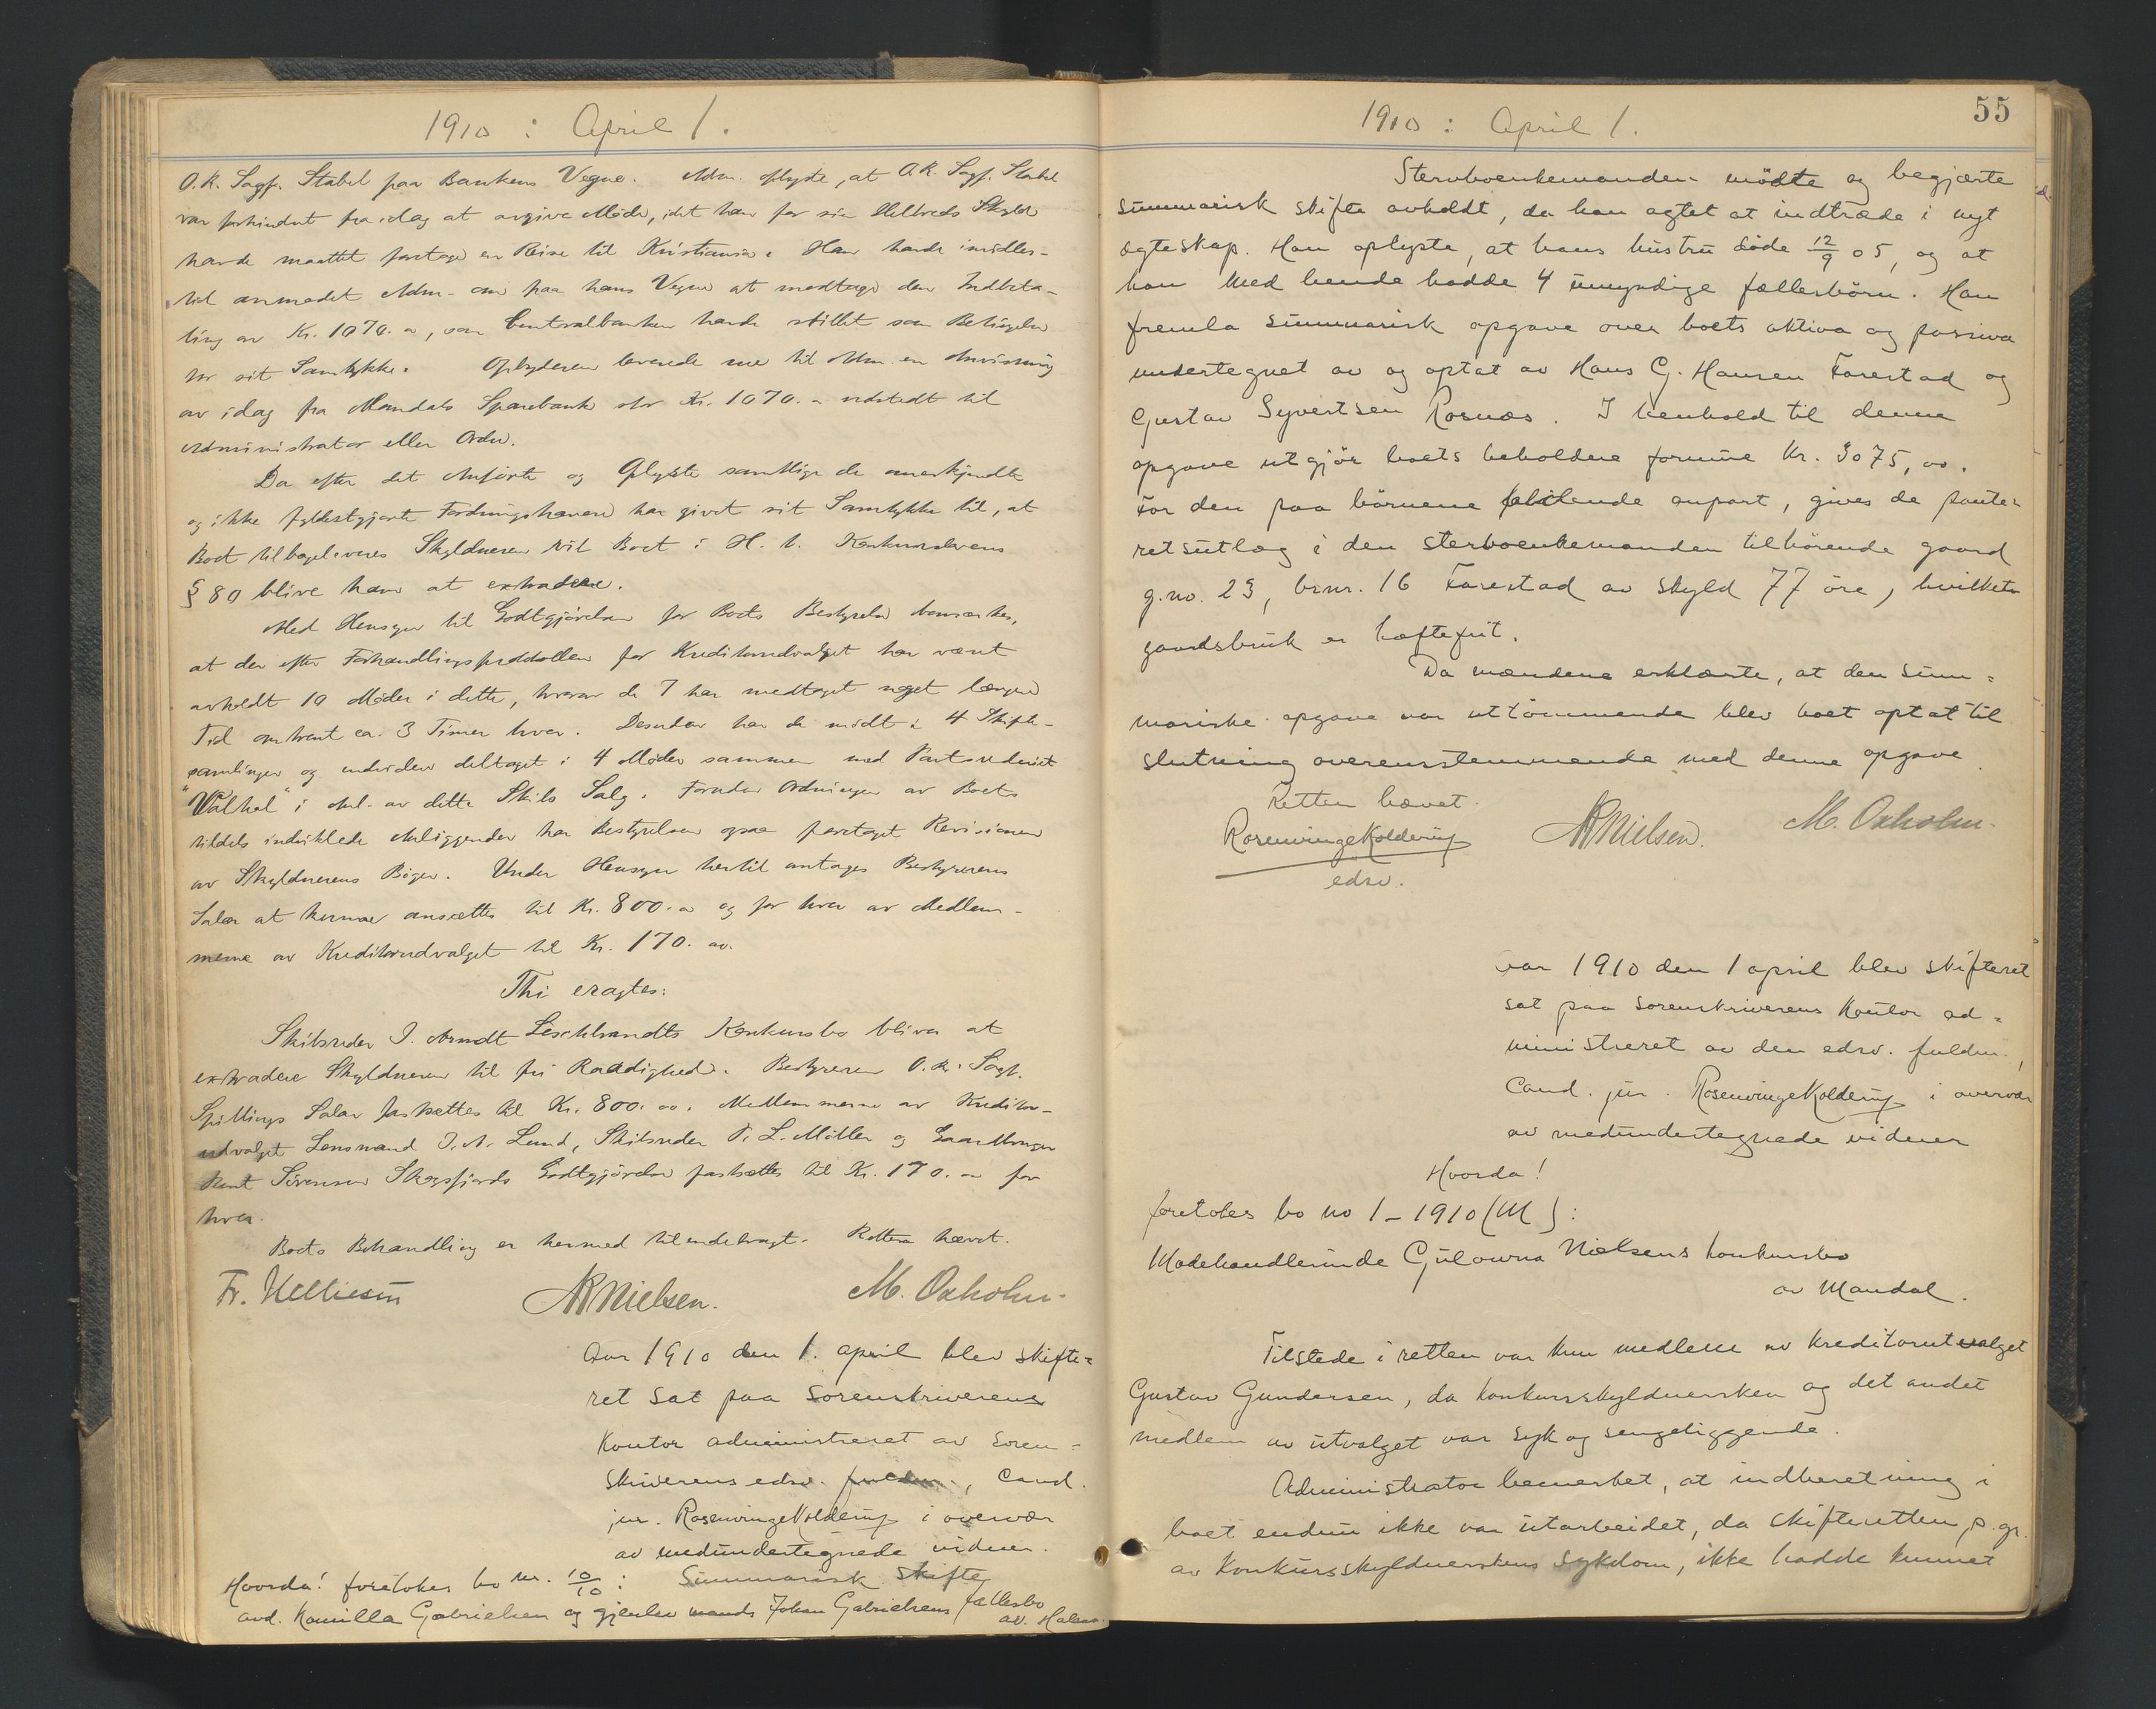 1910 : April 1.
O.R. Sagf. Stabel paa Bankens Vegne. Adm. oplyste, at O.R. Sagf. Stabel
var forhindret fra idag at avgive Møde, idet han for sin Helbreds Skyld
havde maattet foretage en Reise til Kristiania. Han havde imidler-
tid anmodet Adm. om paa hans Vegne at modtage den Indbeta-
ling av Kr. 1070.00, som Centralbanken havde stillet som Betingelse
for sit Samtykke. Opbyderen leverede nu til Adm. en Anvisning
av idag fra Mandals Sparebank stor Kr. 1070.00 udstedt til
Administrator eller Ordre.
Da efter det Anførte og Oplyste samtlige de anerkjendte
og ikke fyldestgjorte Fordringshavere har givet sit Samtykke til, at
Boet tilbageleveres Skyldneren vil Boet i H. t. Konkurslovens
§ 80 blive ham at extradere.
Med Hensyn til Godtgjørelsen for Boets Bestyrelse bemærkes,
at der efter Forhandlingsprotokollen for Kreditorudvalget har været
avholdt 10 Møder i dette, hvorav de 7 har medtaget noget længere
Tid omtrent ca. 3 Timer hver. Desuden har de mødt i 4 Skifte-
samlinger og endvidere deltaget i 4 Møder sammen med Partsrederiet
"Valhal" i Anl. av dette Skibs Salg. Foruden Ordningen av Boets
tildels indviklede Anliggender har Bestyrelsen ogsaa foretaget Revisionen
av Skyldnerens Bøger. Under Hensyn hertil antages Bestyrerens
Salær at kunne ansættes til Kr. 800.00 og for hver av Medlem-
merne av Kreditorudvalget til Kr. 170.00.
Thi eragtes:
Skibsreder J. Arndt Leschbrandts Konkursbo bliver at
extradere Skyldneren til fri Raadighed. Bestyreren O.R. Sagf.
Spillings Salær fastsættes til Kr. 800.00. Medlemmerne av Kreditor-
udvalget Lensmand J.A. Lund, Skibsreder T. L. Møller og Gaardbruger
Bent Sørensen Skogsfjords Godtgjørelse fastsættes til Kr. 170.00 for
hver.
Boets Behandling er hermed tilendebragt. Retten hævet.
Fr. Melliesin ARNielsen. M. Oxholm.
Aar 1910 den 1. april blev skifte=
ret sat paa sorenskriverens
kontor administreret av soren=
skriverens edsv. fuldm., cand.
jur. Rosenvinge Kolderup i overvær
av medundertegnede vidner.
Hvorda! foretokes bo nr. 10/10 : Summarisk skifte
avd. Kamilla Gabrielsen og gjenlev mands Johan Gabrielsens fællesbo
av. Halsaa.
1910 : April 1.
55
Stervboenkemanden mødte og begjærte
summarisk skifte avholdt, da han agtet at indtræde i nyt
egteskap. Han oplyste, at hans hustru døde 12/9 05, og at
han med hende hadde 4 umyndige fællesbörn. Han
fremla summarisk opgave over boets aktiva og passiva
undertegnet av og optat av Hans G. Hansen Farestad og
Gustav Syvertsen Rosnæs. I henhold til denne
opgave utgjör boets beholdne formue kr. 3075,00.
For den paa börnene faldende anpart, gives de pante=
retsutlæg i den stervboenkemanden tilhörende gaard
g.no. 23, brnr. 16 Farestad av skyld 77 öre, hvilket
gaardsbruk er hæftefrit.
Da mændene erklærte, at den sum=
mariske opgave var uttömmende blev boet optat til
slutning overensstemmende med denne opgave.
Retten hævet.
Rosenvinge Kolderup ARNielsen. M. Oxholm.
edsv.
Aar 1910 den 1 april blev skifteret
sat paa sorenskriverens kontor ad=
ministreret av den edsv. fuldm.,
cand. jur. Rosenvinge Kolderup i overvær
av medundertegnede vidner
Hvorda!
foretokes bo no 1 – 1910 (M):
Modehandlerinde Gulowna Nielsens konkursbo
av Mandal.
Tilstede i retten var kun medlem av kreditorutvalget
Gustav Gundersen, da konkursskyldnersken og det andet
medlem av utvalget var syk og sengeliggende.
Administrator bemerket, at indberetning i
boet endnu ikke var utarbeidet, da skifteretten p. gr.
av konkursskyldnerskens sykdom, ikke hadde kunnet